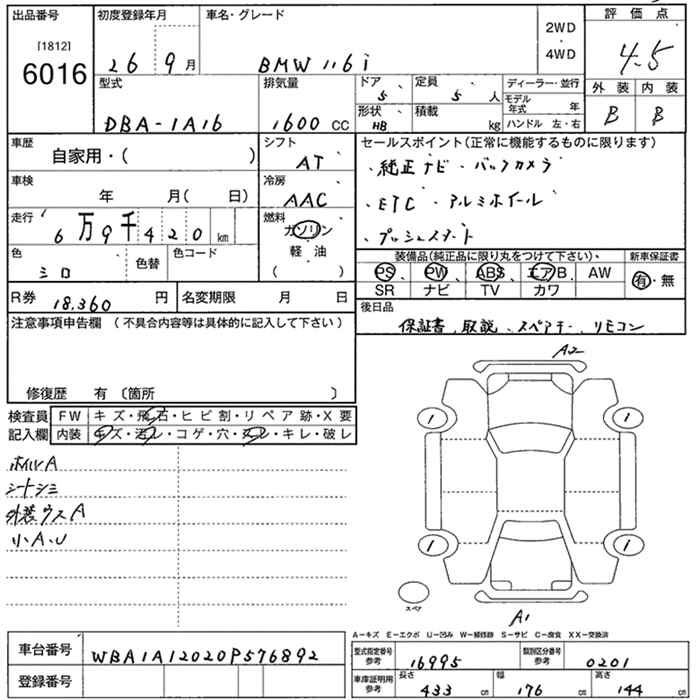 出品番号 初度登録年月 車名・グレード 評価点
[1812] 6016 26 9月 BMW 116i 2WD・4WD 4.5
型式 排気量 ドア 5 定員 5人 ディーラー・並行 外装 内装
DBA-1A16 1600 CC 形状 HB 積載 kg モデル年式 年 B B
ハンドル 左・右
車歴 シフト セールスポイント(正常に機能するものに限ります)
自家用・( ) AT ・純正ナビ・バックカメラ
車検 冷房
年 月( 日) AAC ・ETC・アルミホイール
走行 燃料
6万9千420km ガソリン ・プッシュスタート
色 色替 色コード 軽油 装備品(純正品に限り丸をつけて下さい)、 新車保証書
シロ ( ) PS PW ABS エアB AW 有・無
SR ナビ TV カワ
R券 18,360円 名変期限 月 日 後日品
注意事項申告欄 (不具合内容等は具体的に記入して下さい) 保証書、取説、スペアキー、リモコン
修復歴 有 〔箇所 〕
検査員 FW キズ・飛石・ヒビ割・リペア跡・X要
記入欄 内装 キズ・汚レ・コゲ・穴・スレ・キレ・破レ
A2
ホイルA
シートシミ
外装ウスA
小A、U
1 1
1 1
スペア
A1
A−キズ E−エクボ U−凹み W−補修跡 S−サビ C−腐食 XX−交換済
車台番号 WBA1A12020P576892 型式指定番号 参考 16995 類別区分番号 参考 0201
登録番号 車庫証明用 参考 長さ 433 cm 幅 176 cm 高さ 144 cm